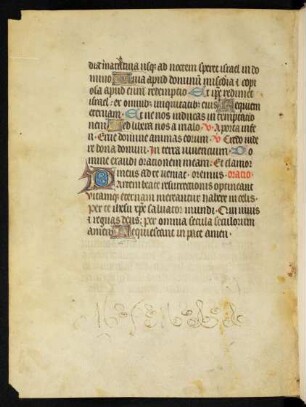 dia matutina usq ad noctem speret israel in do
mino Quia apud dominum misericordia et copi
osa apud eum redemptio Et ipse redimet
israel ex omnibus iniquitatibus eius Requiem
eternam Et ne nos inducas in temptatio
nem Sed libera nos a malo V A porta infe
ri Erue domine animas eorum V Credo vide
re bona domini In terra viventium Do
mine exaudi orationem meam Et clamor
meus ad te veniat oremus oratio
Partem beate resurrectionis optineant
vitamque eternam mereantur habere in celis
per te ihesu xpe salvator mundi Qui vivis
et regnas deus per omnia secula seculorum
amen Requiescant in pace amen